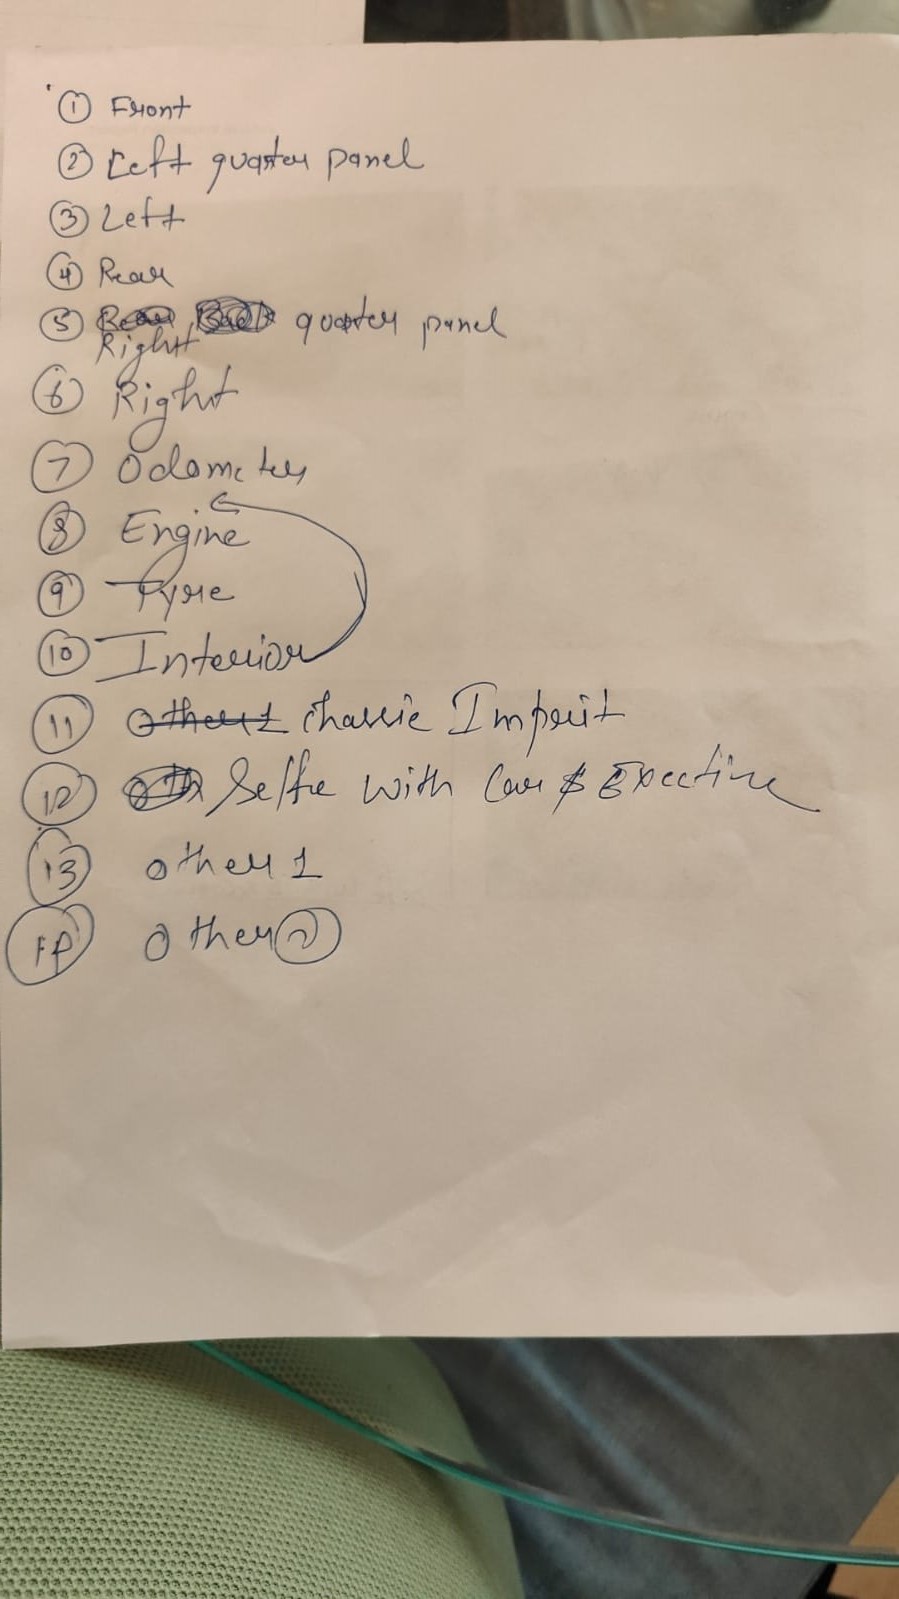 ① Front
② Left quarter panel
③ Left
④ Rear
⑤ Right quarter panel
⑥ Right
⑦ Odometer
⑧ Engine
⑨ Tyre
⑩ Interior
⑪ other 1 chassie Imprint
⑫ Selfie with Car & Exective
⑬ other 1
other ②